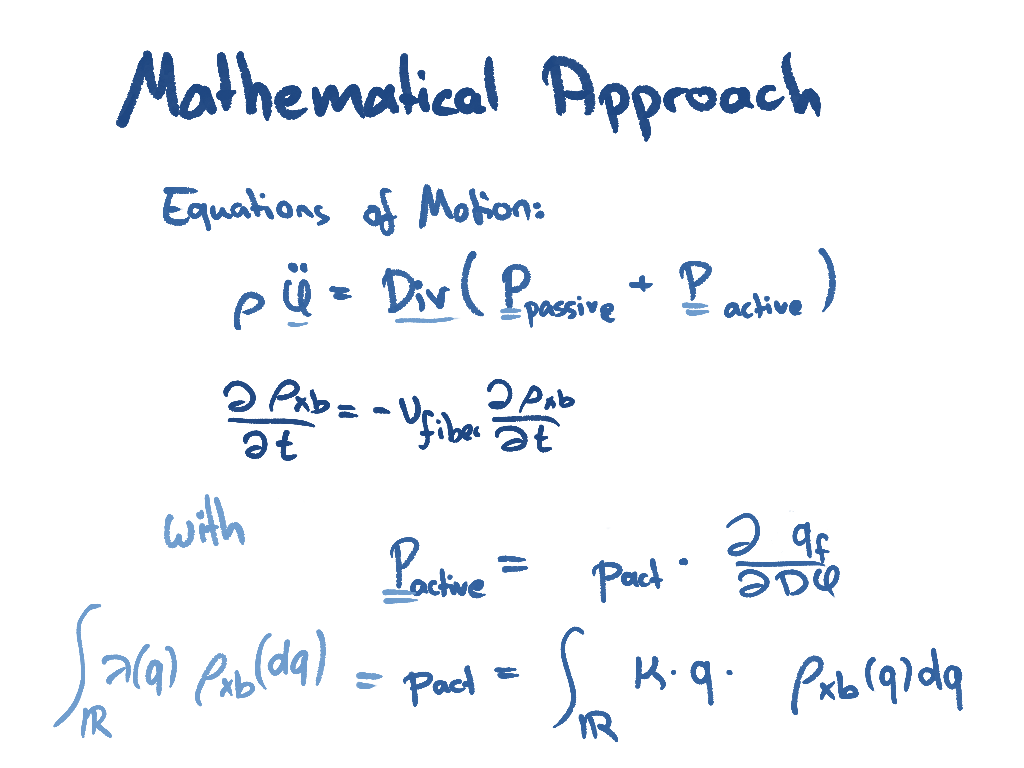 Mathematical Approach
Equations of Motion:
ρ φ̈ = Div ( P passive + P active )
∂ρxb/∂t = - υfiber ∂ρxb/∂t
with
Pactive = pact · ∂qf/∂Dφ
∫ℝ λ(q) ρxb(dq) = pact = ∫ℝ K · q · ρxb(q)dq